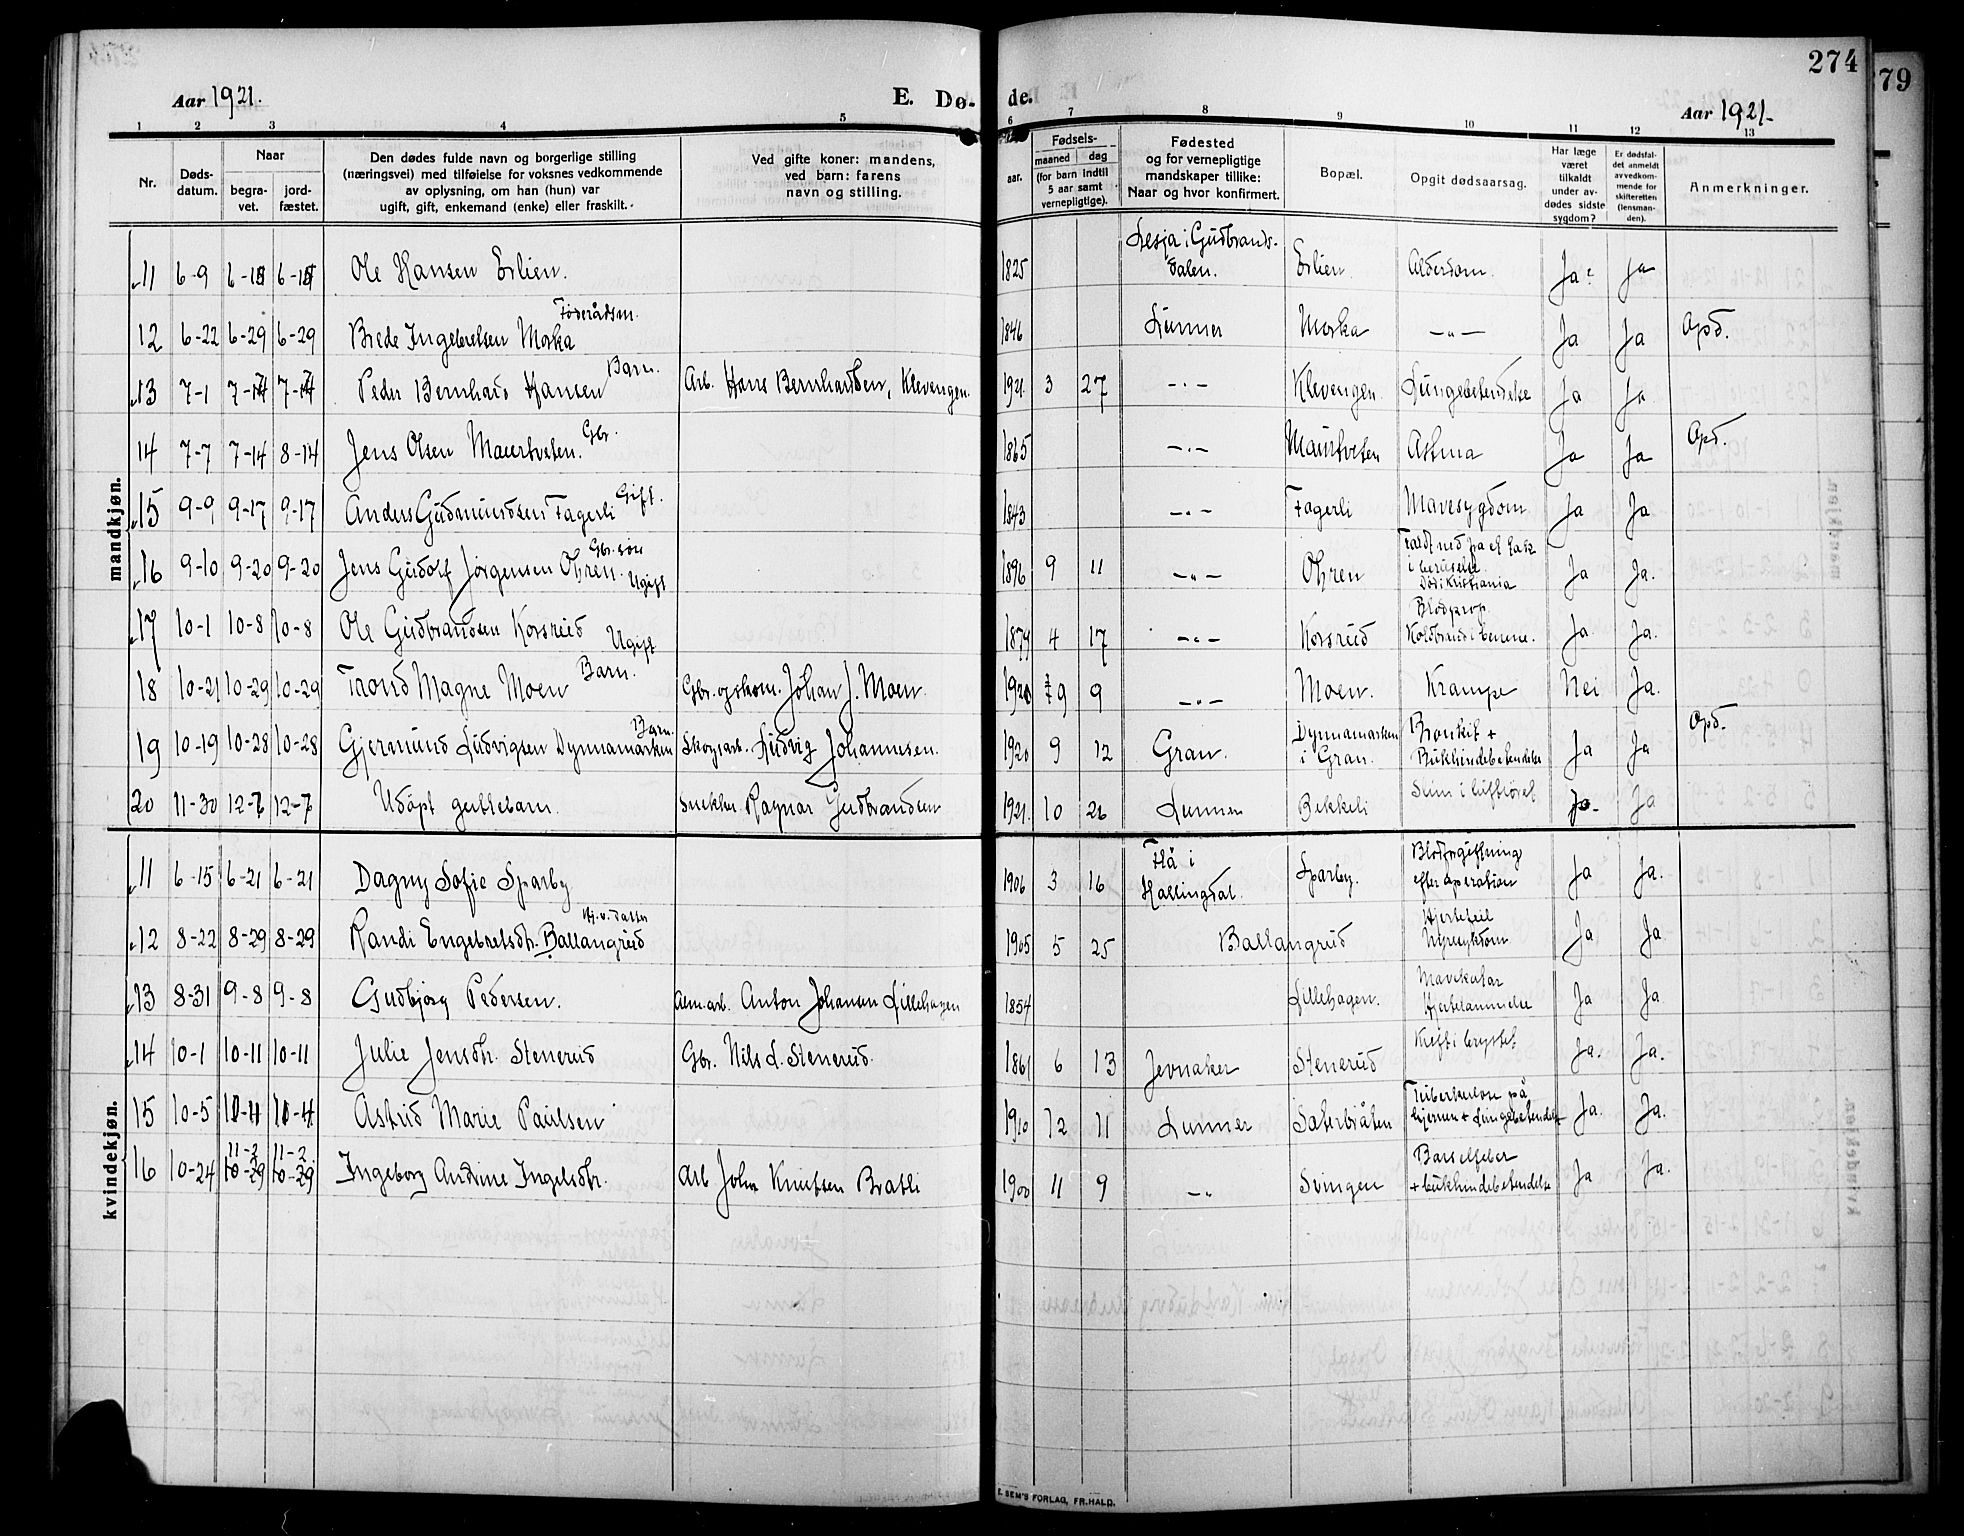 274
279
Aar 1921.
E. Dø-
de.
Aar 1921.
1 2 3 4 5 6 7 8 9 10 11 12 13
Nr.
Døds-
datum.
Naar
begra-
vet.
jord-
fæstet.
Den dødes fulde navn og borgerlige stilling
(næringsvei) med tilføielse for voksnes vedkommende
av oplysning, om han (hun) var
ugift, gift, enkemand (enke) eller fraskilt.
Ved gifte koner: mandens,
ved barn: farens
navn og stilling.
aar.
Fødsels-
maaned dag
(for barn indtil
5 aar samt
vernepligtige).
Fødested
og for vernepligtige
mandskaper tillike:
Naar og hvor konfirmert.
Bopæl.
Opgit dødsaarsag.
Har læge
været
tilkaldt
under av-
dødes sidste
sygdom?
Er dødsfal-
det anmeldt
av vedkom-
mende for
skifteretten
(lensman-
den).
Anmerkninger.
mandkjøn.
11 6-9 Ole Hansen Erlien. 1825 Lesja i Gudbrands-
dalen. Erlien. Alderdom. Ja ja
12 6-22 6-29 6-29 Brede Ingebretsen Morka Føderådsm. 1846 Lunner Morka -"- Ja Ja Opd.
13 7-1 Peder Bernhard Hansen Barn. Arb. Hans Bernhardsen, Klevengen. 1921. 3 27 -"- Klevengen Lungebetendelse Ja Ja
14 7-7 7-14 8-14 Jens Olsen Maurtveten. Gbr. 1865 -"- Maurtveten Astma Ja Ja Opd.
15 9-9 9-17 9-17 Anders Gudmundsen Fagerli Gift. 1843 -"- Fagerli Mavesygdom Ja Ja
16 9-10 9-20 9-20 Jens Gudolf Jørgensen Ohren. Gbr.søn
Ugift 1896 9 11 -"- Ohren Faldt ned fra et tak
i beruselse.
Død i Kristiania Ja Ja.
17 10-1 10-8 10-8 Ole Gudbrandsen Korsrud Ugift 1879 4 17 -"- Korsrud Blodprop
Koldbrand i benene. Ja Ja.
18 10-21 10-29 10-29 Trond Magne Moen Barn. Gbr. og skom. Johan J. Moen. 9 -"- Moen. Krampe Nei Ja.
19 10-19 10-28 10-28 Gjermund Ludvigsen Dynnamarken Barn. Skogsarb. Ludvig Johannesen. 1920 9 12 Gran. Dynnamarken
i Gran. Bronkit +
Bukhindebetendelse Ja Ja Opd.
20 11-30 12-7 12-7 Udøpt guttebarn. Snekker Ragnar Gudbrandsen 1921. 10 26 Lunner Bekkeli Slim i luftrøret Ja Ja
kvindekjøn.
11 6-15 6-21 6-21 Dagny Sofie Sparby. 1906 3 16 Flå i
Hallingdal. Sparby. Blodforgiftning
efter operation Ja Ja.
12 8-22 8-29 8-29 Randi Engebretsdtr. Ballangrud datter 1905 5 25 Ballangrud Hjertefeil
Nyresykdom Ja Ja
13 8-31 9-8 9-8 Gudbjørg Pedersen. Alm.arb. Anton Johansen Lillehagen 1854 Lillehagen. Mavekatar
Hjertelammelse Ja Ja
14 10-1 10-11 10-11 Julie Jensdtr. Stenerud Gbr. Nils L. Stenerud. 1861 6 13 Jevnaker Stenerud Kreft i brystet Ja. Ja.
15 10-5 Astrid Marie Paulsen 1910 12 11 Lunner Saterbråten Tuberkulose på
hjernen + Lungebetendelse Ja. Ja.
16 10-24 11-2
10-29 11-2
10-29 Ingeborg Andrine Ingelsdtr. Arb John Knutsen Bratli 1900 11 9 -"- Svingen Barselfeber
+ bukhindebetendelse Ja Ja.
E. SEM'S FORLAG, FR.HALD.